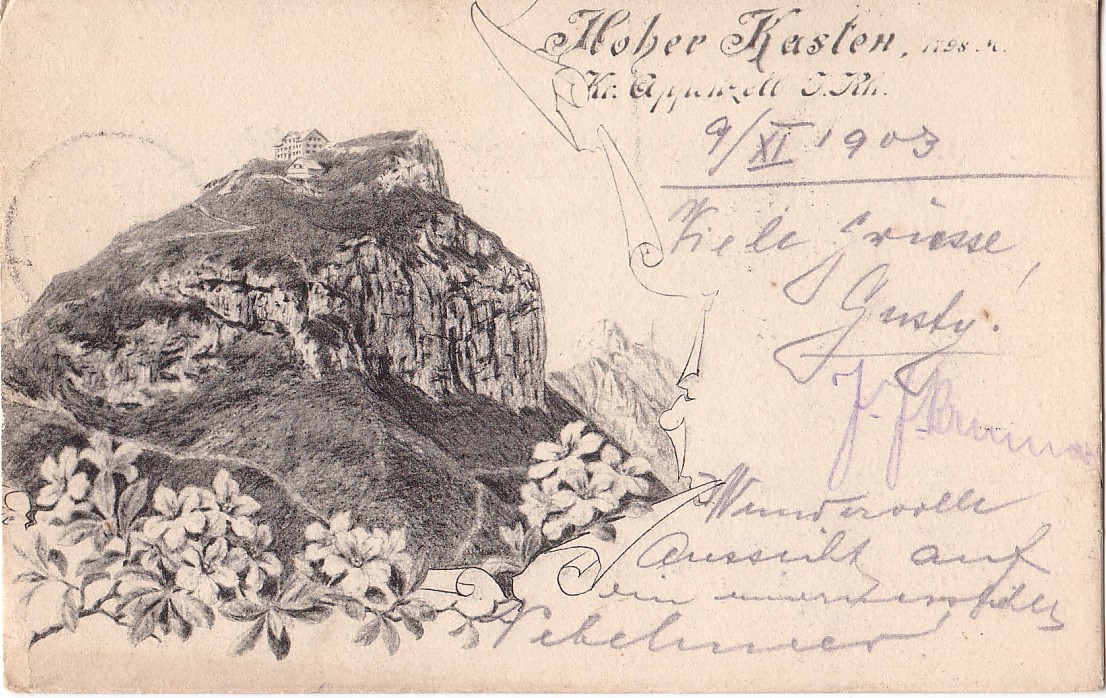 Hoher Kasten, 1798 M.
Kt. Appenzell I. Rh.
9/XI 1903
Viele Grüsse,
Gusty.
Wundervolle
Aussicht auf
ein unermessliches
Nebelmeer!